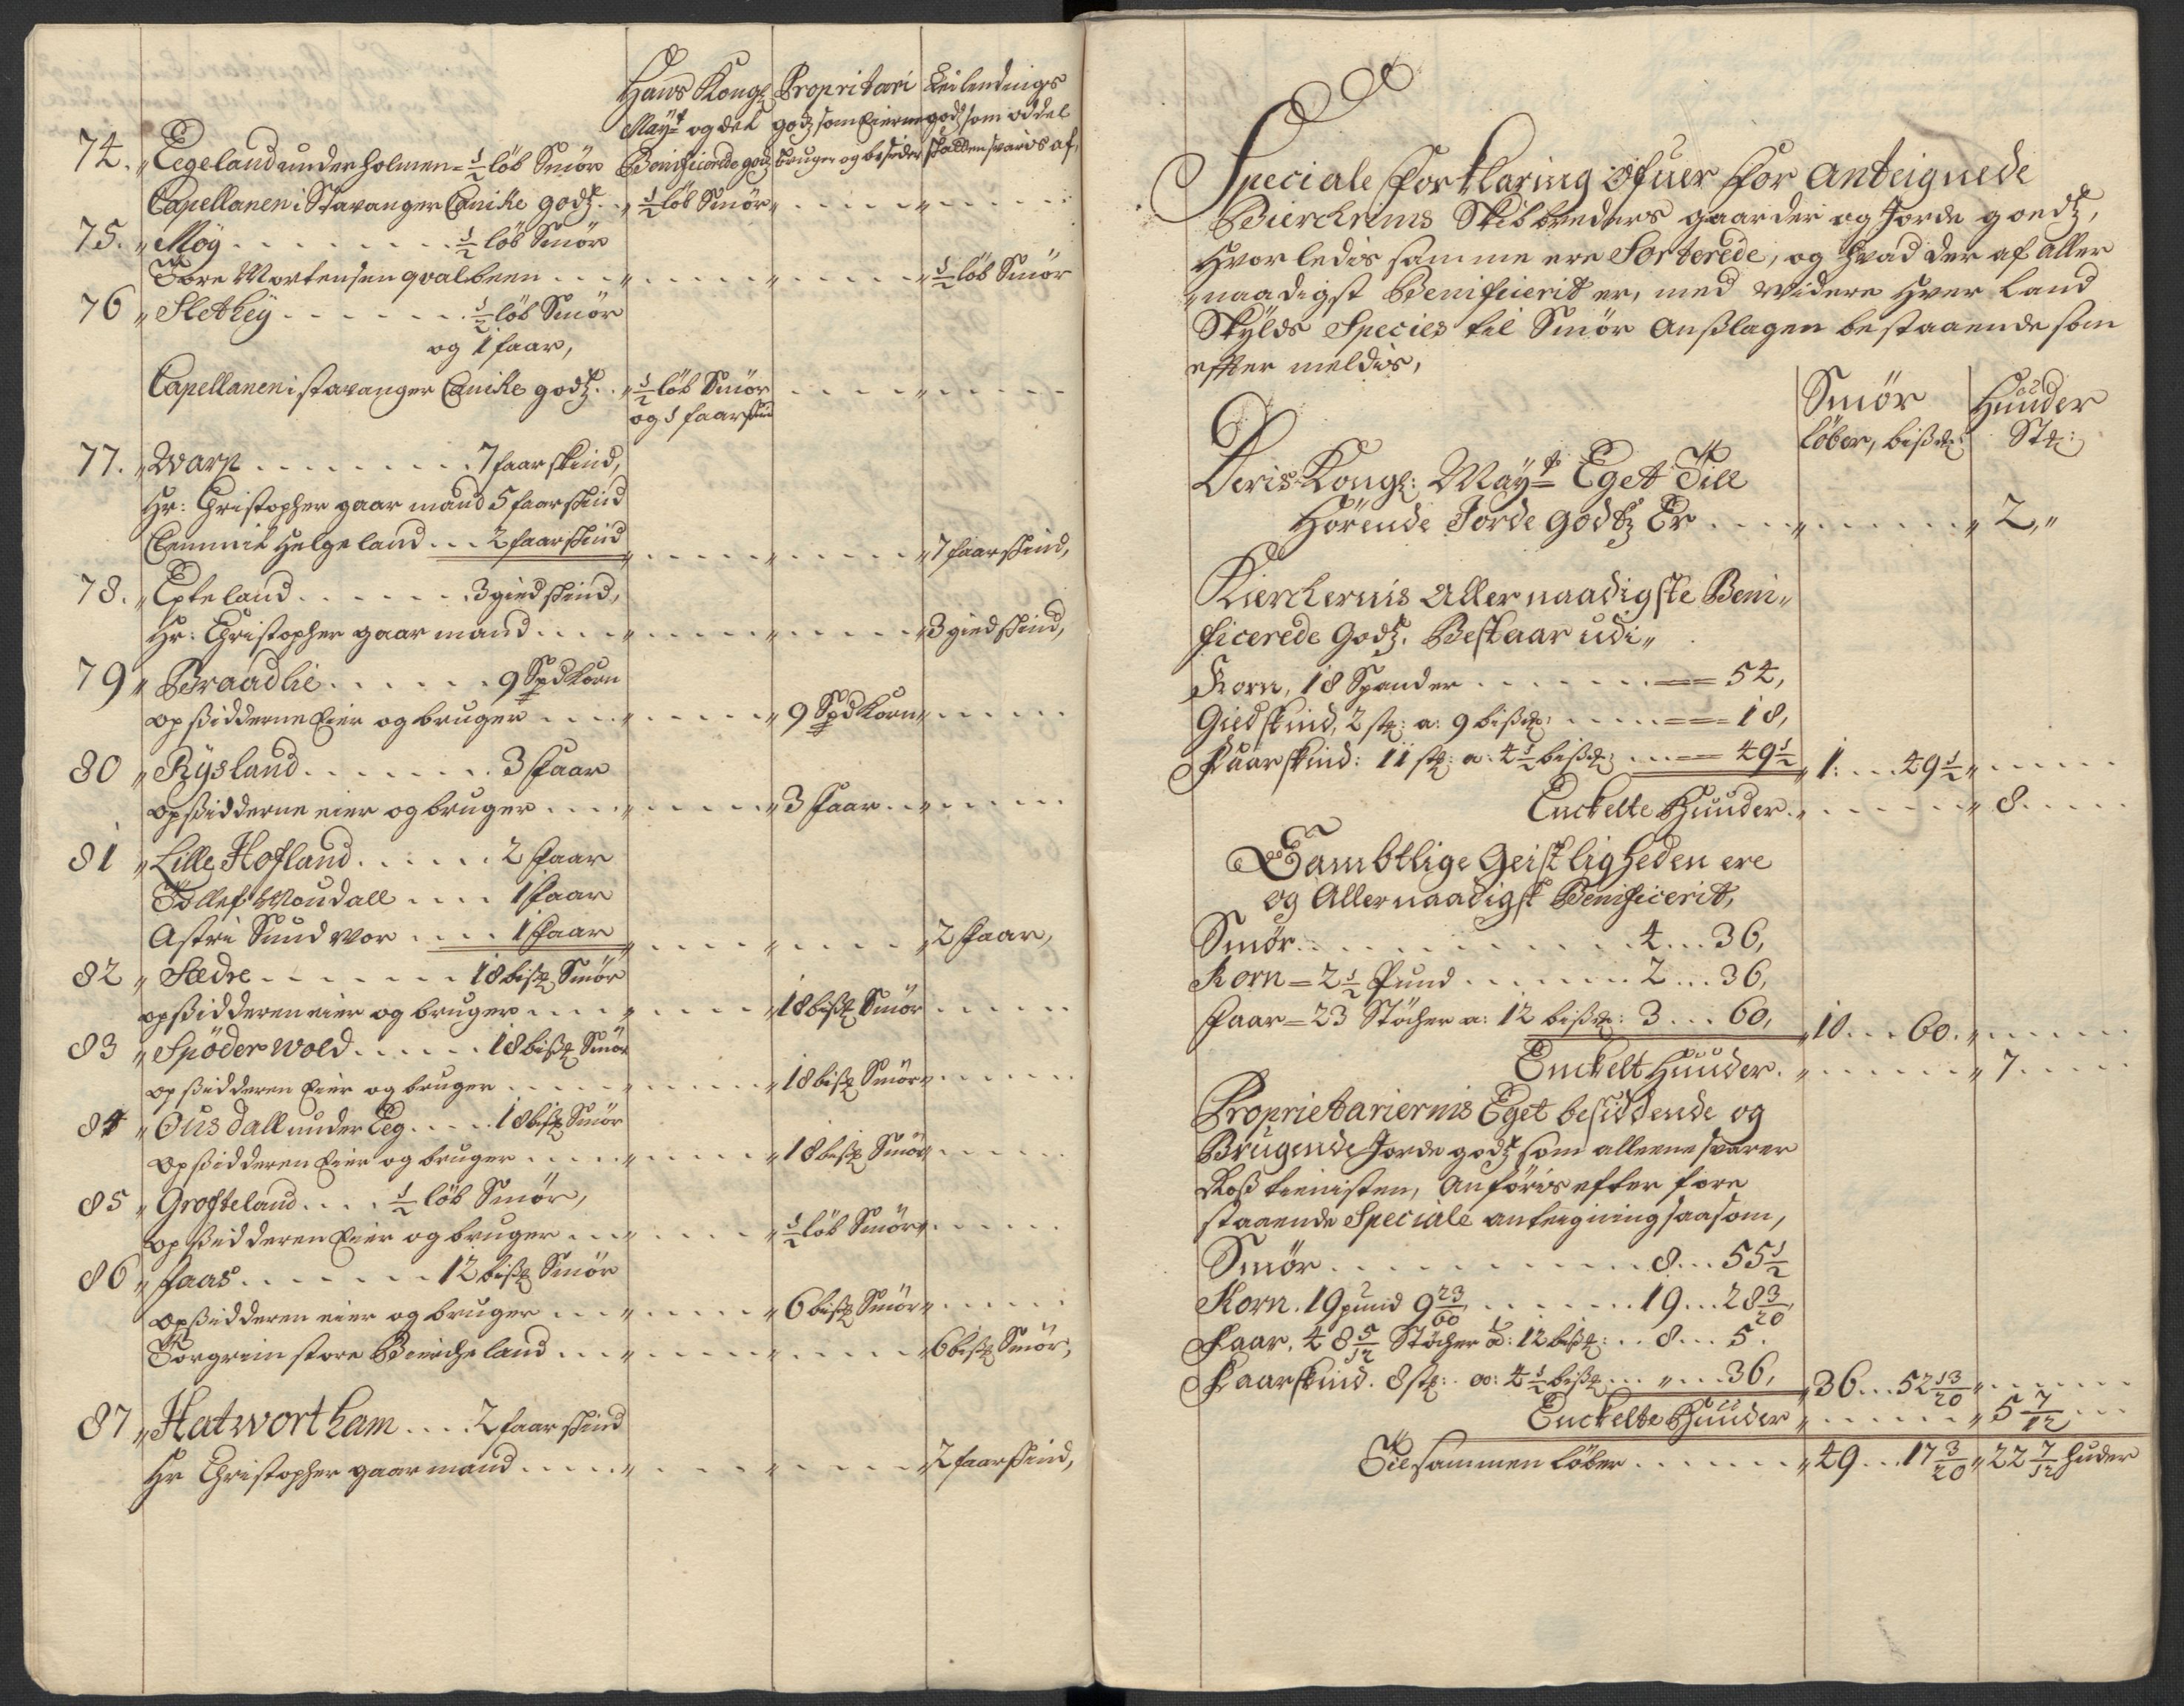 Hans Kongl Propritari Leilendings
Mayt og det godz som Eierne godz som oddel
74. Eegeland under holmen = ½ löb Smör Benificerede godz bruger og besider skatten svaris af,
Capellanen i Stavanger Canike godz. . ½ löb Smör
75. Möÿ . . . . ½ löb Smör
Tore Mortensen qvalbeen . . . ½ löb Smör
76 Slethey . . . . ½ löb Smör
og 1 faar,
Capellanen i stavanger Canike godz . . ½ löb Smör
og 1 faarskind
77. Warp . . . . 7 faarskind,
Hr: Christopher gaarmand 5 faarskind
Helgeland . . . 2 faarskind . . . 7 faarskind,
78. Epteland . . . . 3 giedskind,
Hr: Christopher gaarmand . . . . 3 giedskind,
79 Braadlie . . . . 9 Spd Korn
opsidderne Eier og bruger . . . . 9 Spd Korn
80 Rÿsland . . . . 3 faar
opsidderne eier og bruger . . . . 3 faar
81 Lille Hofland . . . . 2 faar
Tollef Moudall . . . . 1 faar
Astri Sundwor . . . . 1 faar . . . . 2 faar,
82 Sædre . . . . 18 bismr Smör
opsidderen eier og bruger . . . . 18 bismr Smör
83 Spöderwold . . . . 18 bismr Smör
opsidderen Eier og bruger . . . . 18 bismr Smör
84 Ousdall under Eeg . . . . 18 bismr Smör
opsidderen Eier og bruger . . . . 18 bismr Smör
85 Grofteland . . . . ½ löb Smör,
opsidderen Eier og bruger . . . . ½ löb Smör
86 faas . . . . 12 bismr Smör
opsidderen eier og bruger . . . . 6 bismr Smör
Torgrim store Bircheland . . . . 6 bismr Smör,
87 Hatwortham . . . . 2 faarskind
Hr Christopher gaarmand . . . . 2 faarskind,
Speciale Forklaring öfuer For Anteignede
Bierchrims Skibbreders gaarder og Jorde goedz,
Hvorledis samme ere Sorterede, og hvad der af Aller
naadigst Benificerit er, med widere Hver Land
Skÿlds Species til Smör Anslagen bestaaende som
efter meldis,
Smör Huuder
löber, bismr Stk:
Deris Kongl: Mayt Eget Till
Hörende Jorde Godtz Er . . . . 2
Kierchernis Aller naadigste Beni
ficerede Godz. Bestaar udi
Korn, 18 Spander . . . . 54,
Giedskind, 2 stk: a: 9 bismr: . . . . 18,
Faarskind: 11 stk: a: 4½ bismr . . . . 49½ 1 . . . 49½
Enckelte Huuder . . . . 8
Samblige Geistligheden ere
og Allernaadigst Benificerit,
Smör . . . . 4 . . . 36,
Korn = 2½ Pund . . . . 2 . . . 36,
Faar = 23 Stöcher a: 12 bismr: 3 . . . 60, 10 . . . 60
Enckelt Huuder . . . . 7
Proprietariernis Eget besiddende og
Brugende Jorde godz som alleene svarer
Rostienisten, Anföris efter fore
staaende Speciale anteigning saasom,
Smör . . . . 8 . . . 55½
Korn. 19 pund 9 23/60 . . . . 19 . . . 28 3/20
Faar. 48 5/12 Stöcher a: 12 bismr: . . 8 . . . 5
Faarskind. 8 stk: a: 4½ bismr . . . . 36, 36 . . . 52 13/20
Enckelte Huuder . . . . 5 7/12
Tilsammen löber . . . . 49 . . . 17 3/20 22 7/12 huder